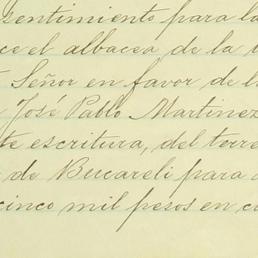 sentimiento para la
ce el albacea de la
Señor en favor de
José Pablo Martinez
te escritura, del terre
de Bucareli para
cinco mil pesos en